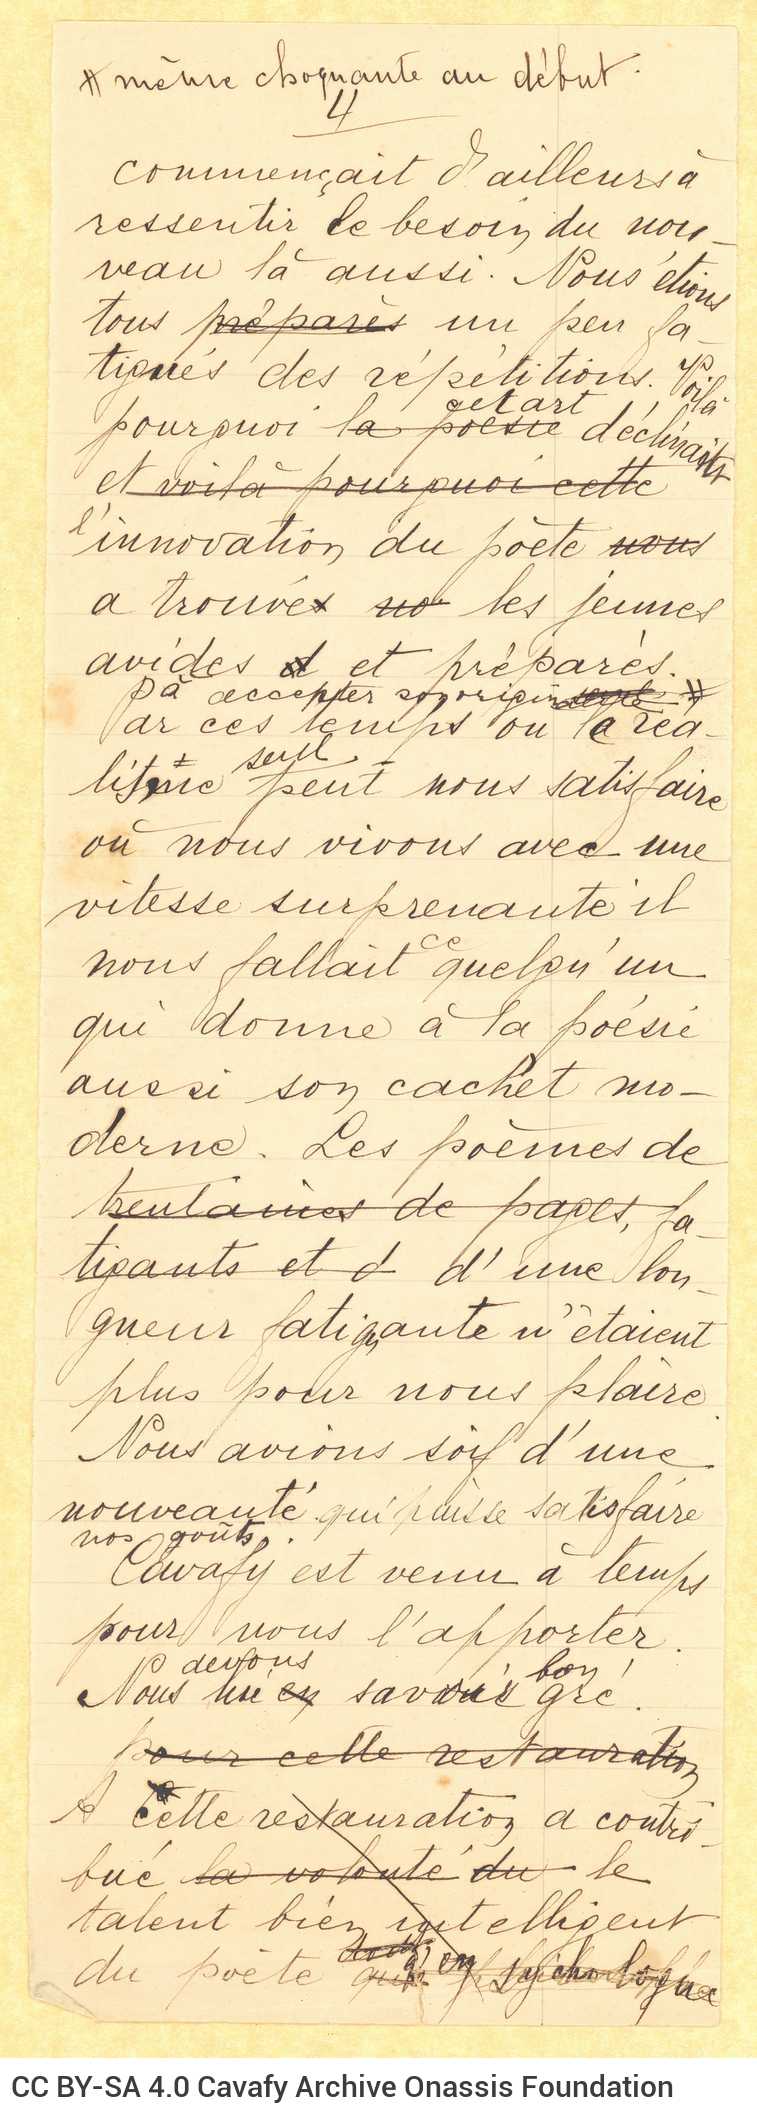 # même choquante au début.
4
commençait d'ailleurs à
ressentir le besoin du nou-
veau là aussi. Nous étions
tous préparés un peu fa-
tigués des répétitions. Voilà
cet art
pourquoi la poésie déclinait
et voilà pourquoi cette
l'innovation du poète nous
a trouvés no les jeunes
avides d et préparés.
à accepter son origin seule #
Par ces temps où le réa-
seul
lisme peut nous satisfaire
où nous vivons avec une
vitesse surprenante il
ce
nous fallait quelqu'un
qui donne à la poésie
aussi son cachet mo-
derne. Les poèmes de
trentaines de pages, fa-
tigants et d d'une lon-
gueur fatigante n'étaient
plus pour nous plaire.
Nous avions soif d'une
nouveauté qui puisse satisfaire
nos goûts.
Cavafy est venu à temps
pour nous l'apporter.
devons bon
Nous lui en savoir gré.
pour cette restauration
A Cette restauration a contri-
bué la volonté du le
talent bien intelligent
du poète qui en psychologue